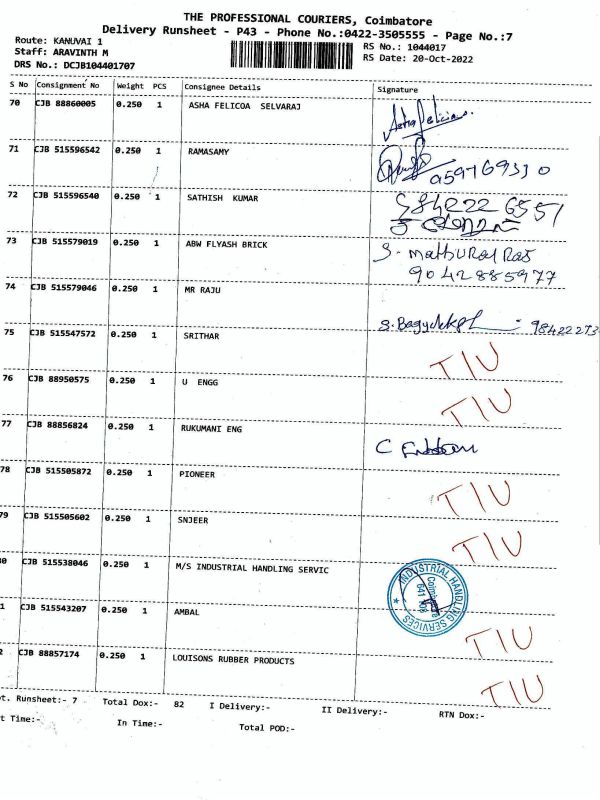 THE PROFESSIONAL COURIERS, Coimbatore
Delivery Runsheet - P43 - Phone No.:0422-3505555 - Page No.:7
Route: KANUVAI 1
Staff: ARAVINTH M
DRS No.: DCJB104401707
RS No.: 1044017
RS Date: 20-Oct-2022
S No Consignment No Weight PCS Consignee Details Signature
70 CJB 88860005 0.250 1 ASHA FELICOA SELVARAJ
71 CJB 515596542 0.250 1 RAMASAMY
72 CJB 515596540 0.250 1 SATHISH KUMAR
73 CJB 515579019 0.250 1 ABW FLYASH BRICK S. Mathu Raj
9042885977
74 CJB 515579046 0.250 1 MR RAJU
75 CJB 515547572 0.250 1 SRITHAR TIU
76 CJB 88950575 0.250 1 U ENGG TIU
77 CJB 88856824 0.250 1 RUKUMANI ENG
78 CJB 515505872 0.250 1 PIONEER TIU
79 CJB 515505602 0.250 1 SNJEER TIU
0 CJB 515538046 0.250 1 M/S INDUSTRIAL HANDLING SERVIC INDUSTRIAL HANDLING SERVICES Coimbatore
1 CJB 515543207 0.250 1 AMBAL TIU
2 CJB 88857174 0.250 1 LOUISONS RUBBER PRODUCTS TIU
t. Runsheet:- 7 Total Dox:- 82 I Delivery:- II Delivery:- RTN Dox:-
t Time:- In Time:- Total POD:-